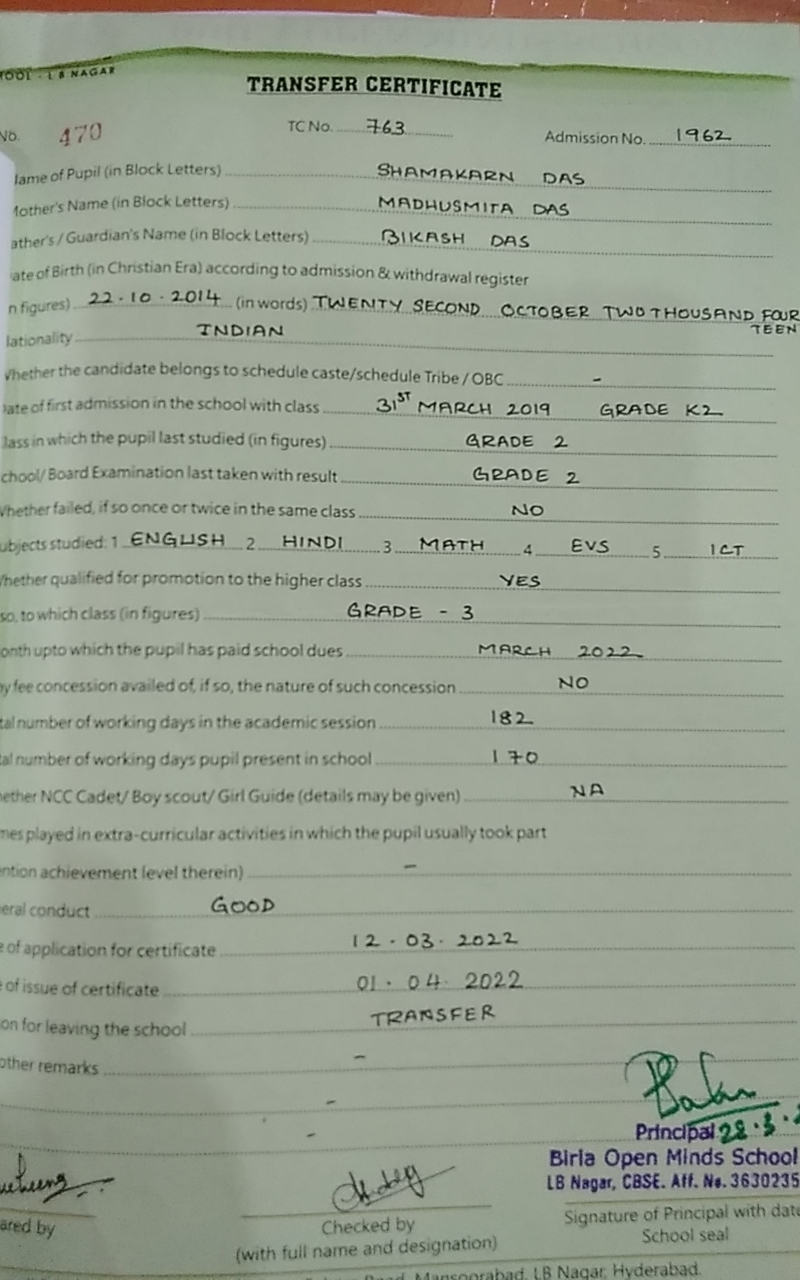 OOL - L B NAGAR
TRANSFER CERTIFICATE
No. 470 TC No. 763 Admission No. 1962
ame of Pupil (in Block Letters) SHAMAKARN DAS
other's Name (in Block Letters) MADHUSMITA DAS
ather's / Guardian's Name (in Block Letters) BIKASH DAS
ate of Birth (in Christian Era) according to admission & withdrawal register
n figures) 22-10-2014 (in words) TWENTY SECOND OCTOBER TWO THOUSAND FOUR
TEEN
ationality INDIAN
hether the candidate belongs to schedule caste/schedule Tribe / OBC -
ate of first admission in the school with class 31ST MARCH 2019 GRADE K2
lass in which the pupil last studied (in figures) GRADE 2
chool/ Board Examination last taken with result GRADE 2
hether failed, if so once or twice in the same class NO
ubjects studied: 1 ENGLISH 2 HINDI 3 MATH 4 EVS 5 ICT
hether qualified for promotion to the higher class YES
so, to which class (in figures) GRADE - 3
onth upto which the pupil has paid school dues MARCH 2022
y fee concession availed of, if so, the nature of such concession NO
tal number of working days in the academic session 182
al number of working days pupil present in school 170
ether NCC Cadet/ Boy scout/ Girl Guide (details may be given) NA
mes played in extra-curricular activities in which the pupil usually took part
ention achievement level therein) -
eral conduct GOOD
e of application for certificate 12-03-2022
e of issue of certificate 01-04-2022
on for leaving the school TRANSFER
other remarks -
-
-
Principal 28.3.2
Birla Open Minds School
LB Nagar, CBSE. Aff. No. 3630235
ared by Checked by Signature of Principal with date
(with full name and designation) School seal
Road, Mansoorabad, LB Nagar, Hyderabad.